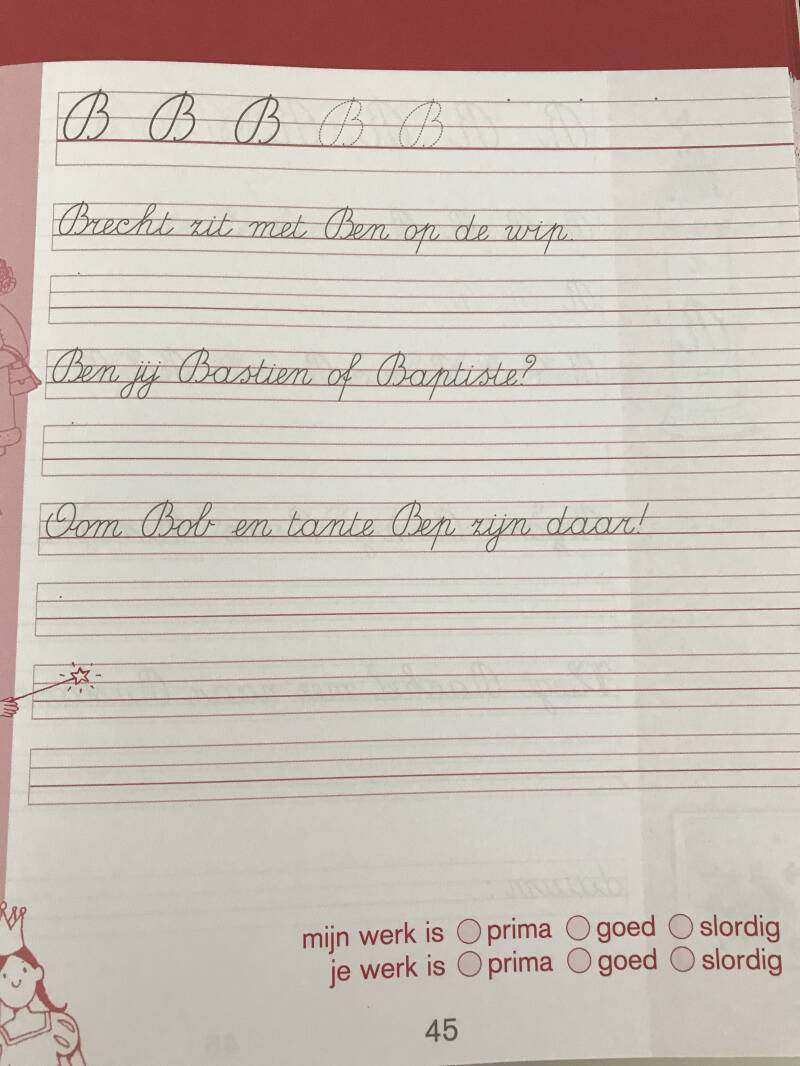 B B B B B
Brecht zit met Ben op de wip.
Ben jij Bastien of Baptiste?
Oom Bob en tante Bep zijn daar!
mijn werk is prima goed slordig
je werk is prima goed slordig
45